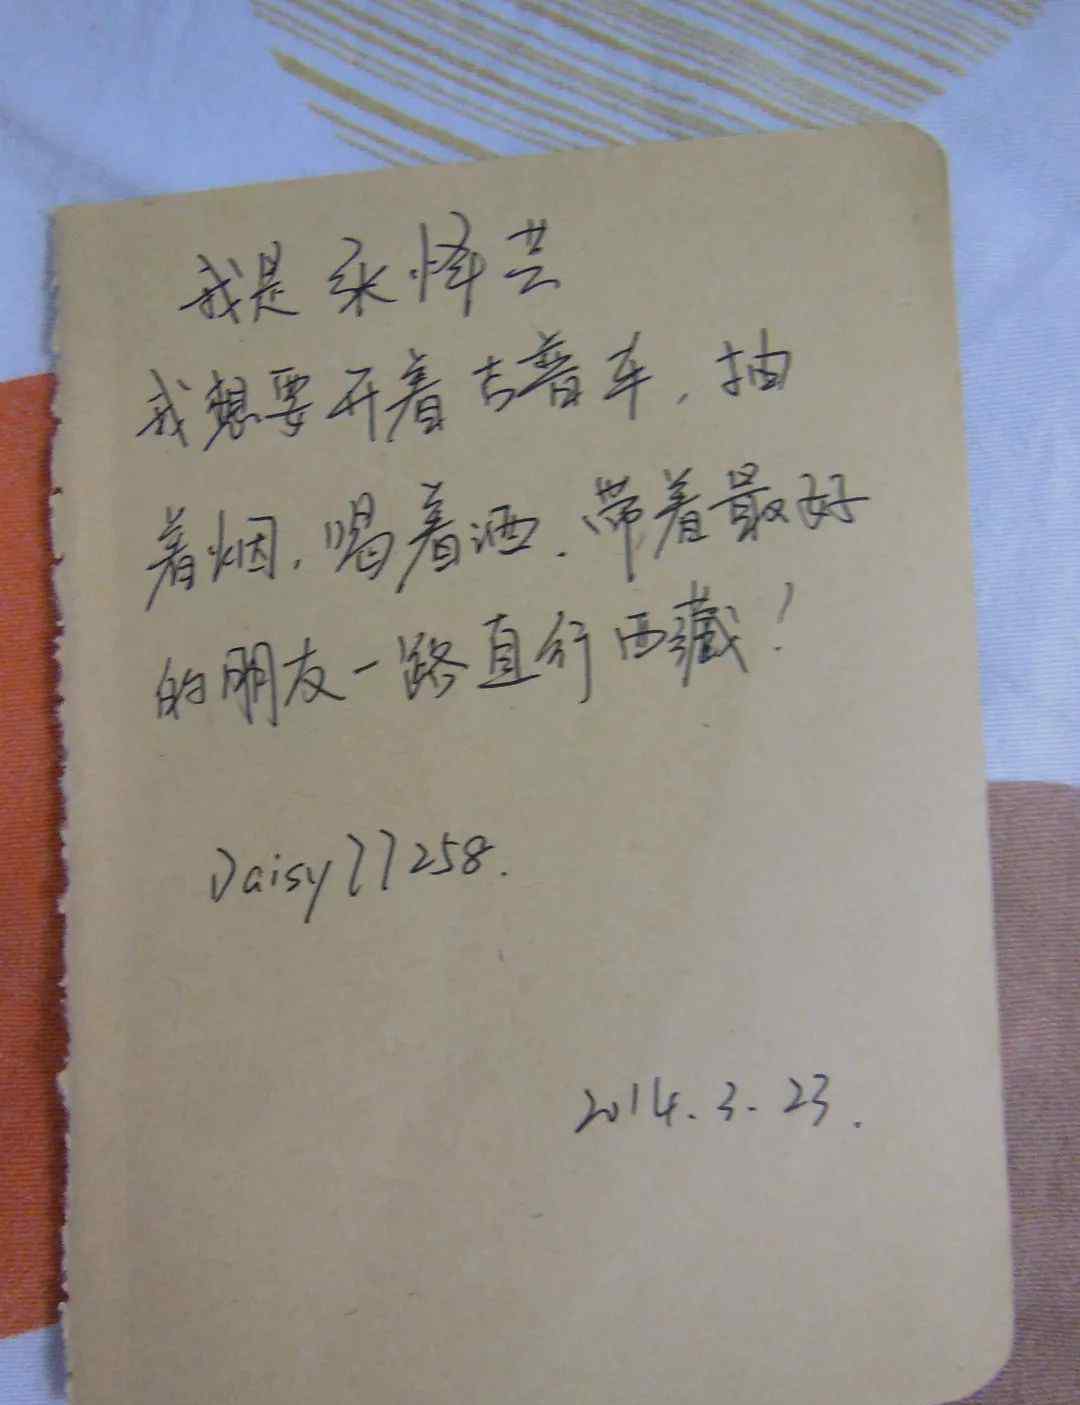 我是永怿芸
我想要开着吉普车，抽
着烟，喝着洒，带着最好
的朋友一路直行西藏！
Daisy77258.
2014.3.23.